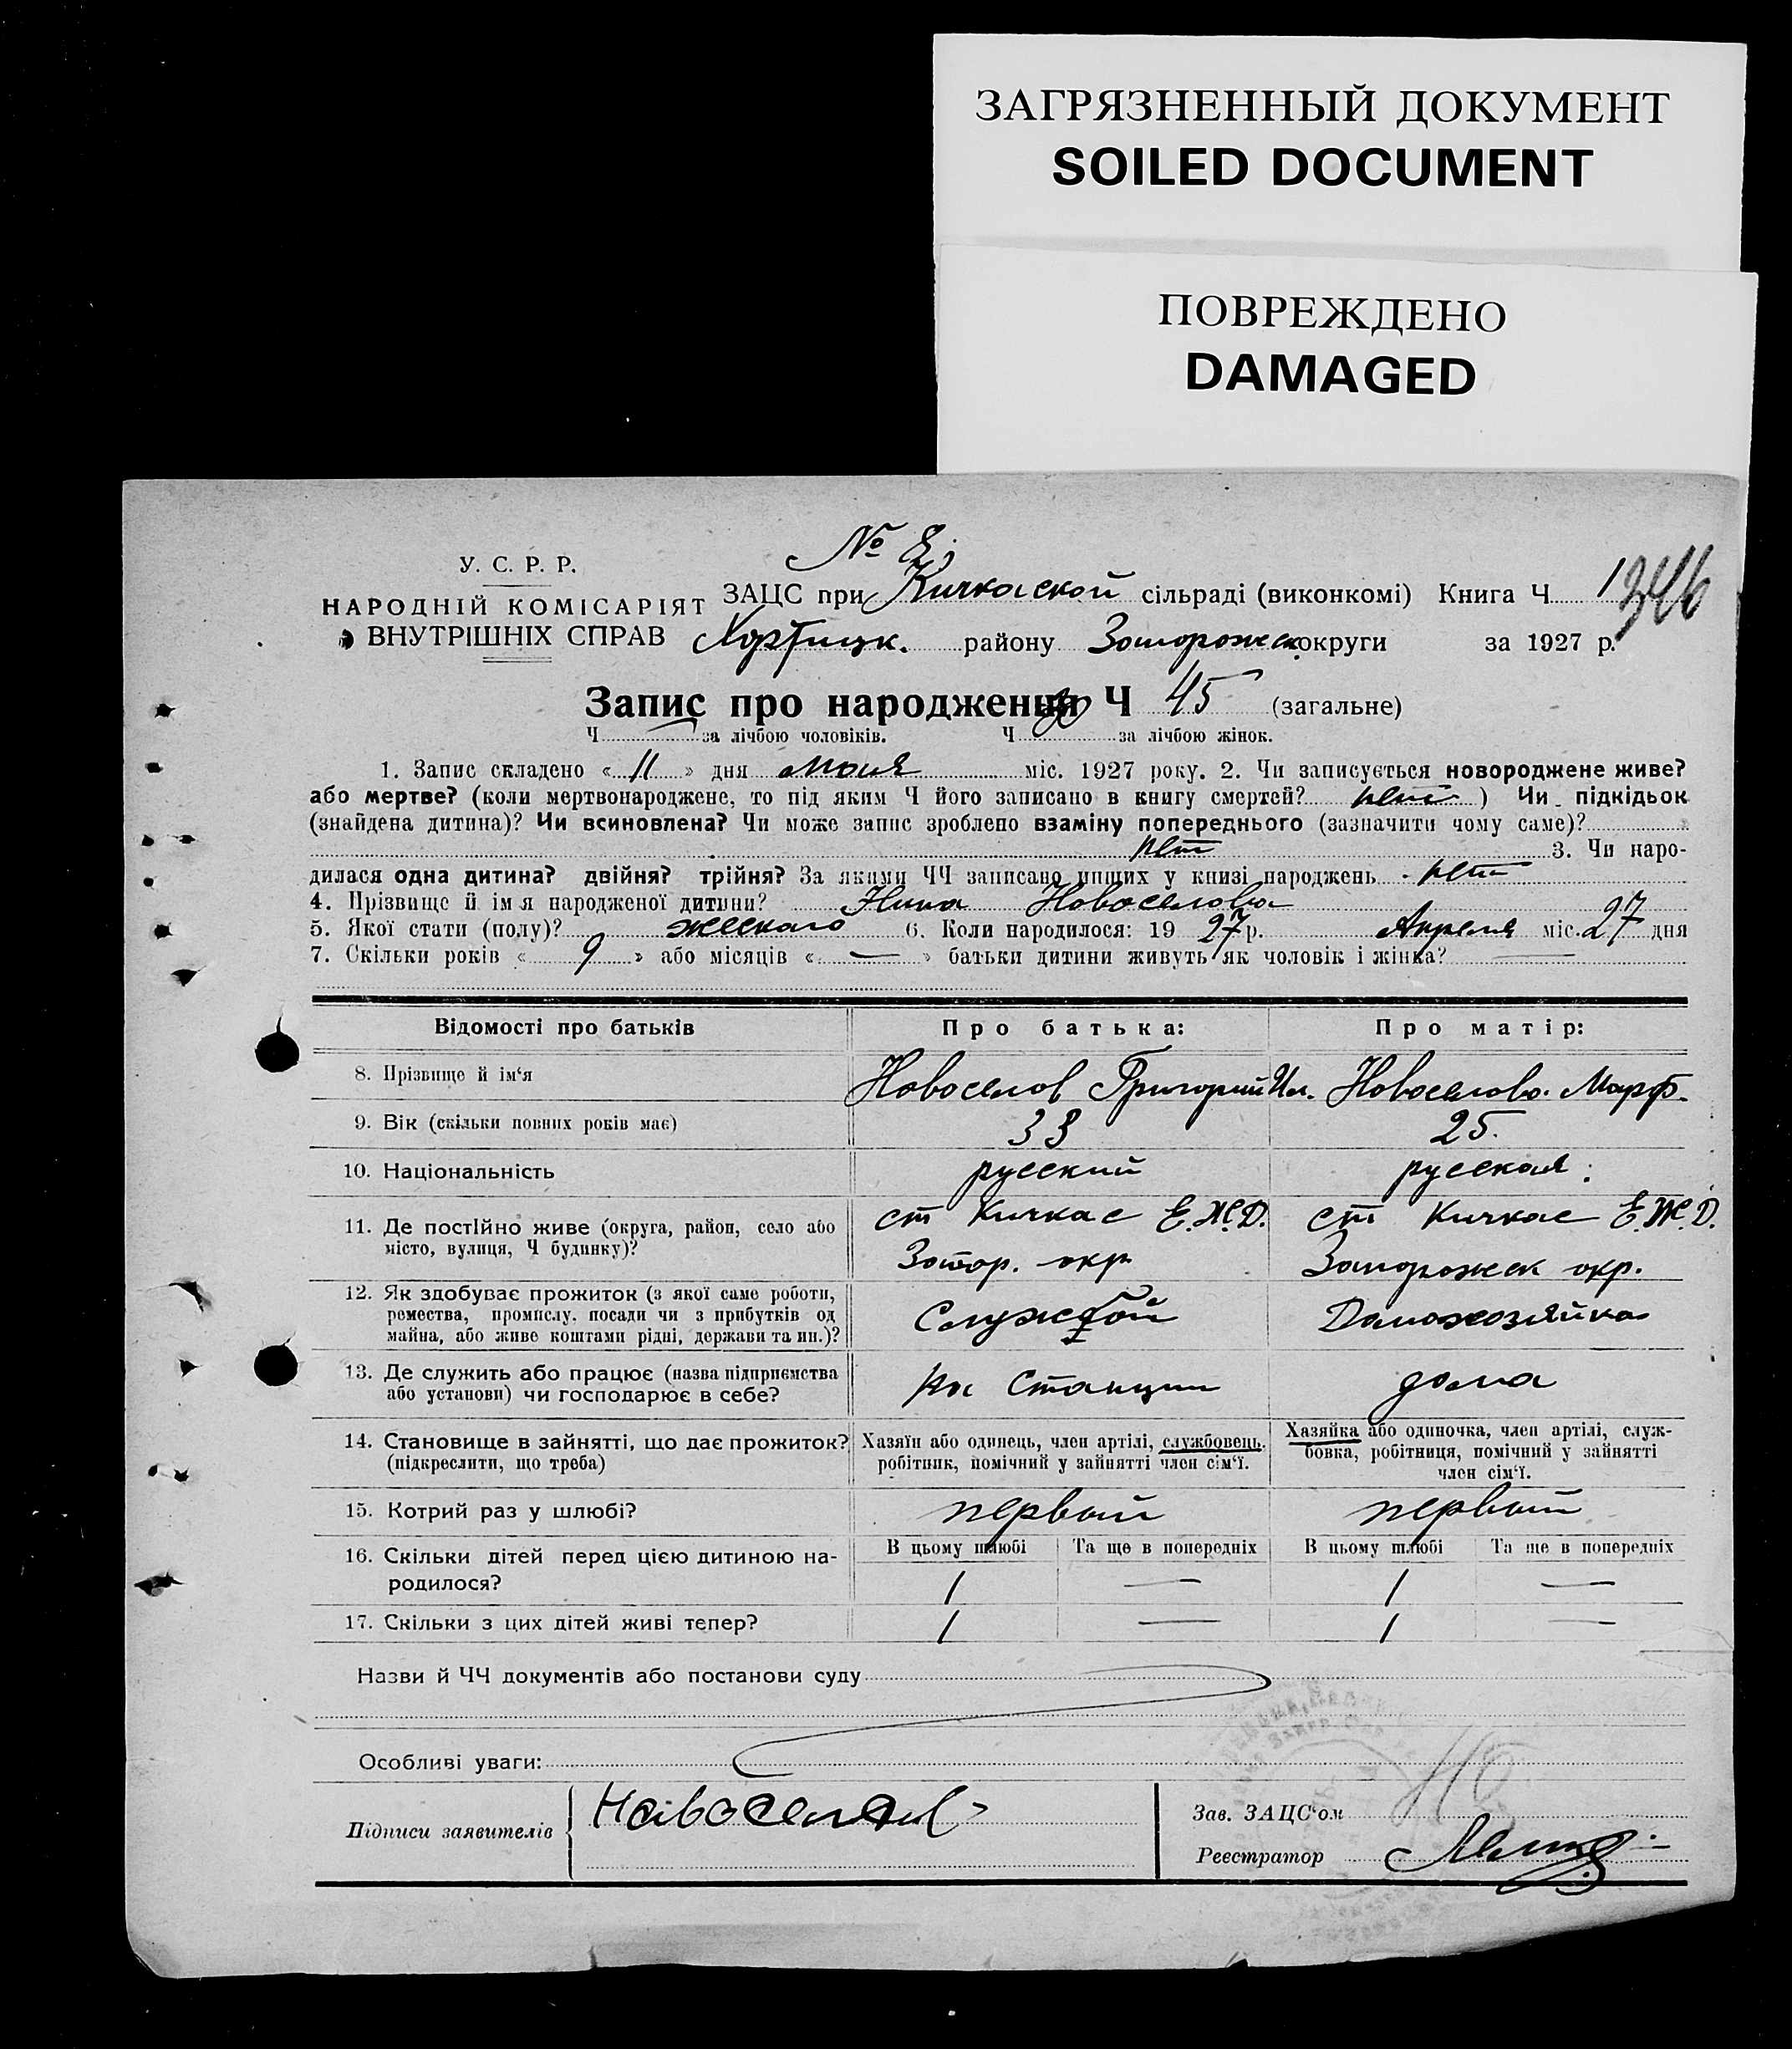 ЗАГРЯЗНЕННЫЙ ДОКУМЕНТ
SOILED DOCUMENT
ПОВРЕЖДЕНО
DAMAGED
№ 8.
У. С. Р. Р.
НАРОДНІЙ КОМІСАРІЯТ
ВНУТРІШНІХ СПРАВ
ЗАЦС при Кичкаской сільраді (виконкомі) Книга Ч 1 346
Хортицк. району Запорожск округи за 1927 р.
Запис про народження Ч 45 (загальне)
Ч за лічбою чоловіків. Ч за лічбою жінок.
1. Запис складено « 11 » дня мая міс. 1927 року. 2. Чи записується новороджене живе?
або мертве? (коли мертвонароджене, то під яким Ч його записано в книгу смертей? нет ) Чи підкідьок
(знайдена дитина)? Чи всиновлена? Чи може запис зроблено взаміну попереднього (зазначити чому саме)?
нет 3. Чи наро-
дилася одна дитина? двійня? трійня? За якими ЧЧ записано инших у книзі народжень нет
4. Прізвище й ім я народженої дитини? Нина Новоселова
5. Якої стати (полу)? женскаго 6. Коли народилося: 19 27 р. Апреля міс. 27 дня
7. Скільки років « 9 » або місяців « — » батьки дитини живуть як чоловік і жінка? —
Відомості про батьків Про батька: Про матір:
8. Прізвище й ім'я Новоселов Григорий Ил. Новоселова Марф.
9. Вік (скільки повних років має) 33 25.
10. Національність русский русская
11. Де постійно живе (округа, район, село або
місто, вулиця, Ч будинку)?
ст Кичкас Е.Ж.Д.
Запор. окр
ст Кичкас Е.Ж.Д.
Запорожск окр.
12. Як здобуває прожиток (з якої саме роботи,
ремества, промислу, посади чи з прибутків од
майна, або живе коштами рідні, держави та ин.)?
Службой Домохозяйка
13. Де служить або працює (назва підприємства
або установи) чи господарює в себе?
на Станции дома
14. Становище в зайнятті, що дає прожиток?
(підкреслити, що треба)
Хазяїн або одинець, член артілі, службовець,
робітник, помічний у зайнятті член сім'ї.
Хазяйка або одиночка, член артілі, служ-
бовка, робітниця, помічний у зайнятті
член сім'ї.
15. Котрий раз у шлюбі? первый первый
16. Скільки дітей перед цією дитиною на-
родилося?
В цьому шлюбі Та ще в попередніх В цьому шлюбі Та ще в попередніх
1 — 1 —
17. Скільки з цих дітей живі тепер? 1 — 1 —
Назви й ЧЧ документів або постанови суду
Особливі уваги:
Підписи заявителів Новоселов
Зав. ЗАЦС'ом
Реєстратор